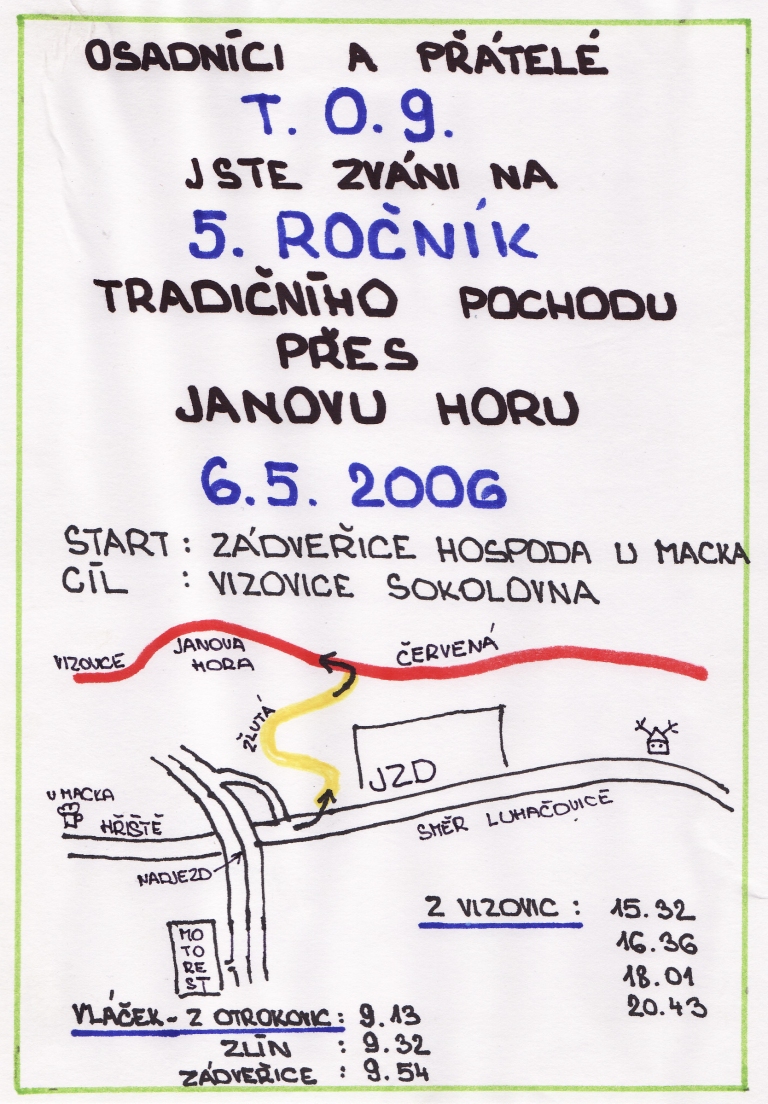 OSADNÍCI A PŘÁTELÉ
T. O. 9.
JSTE ZVÁNI NA
5. ROČNÍK
TRADIČNÍHO POCHODU
PŘES
JANOVU HORU
6.5. 2006
START: ZÁDVEŘICE HOSPODA U MACKA
CÍL : VIZOVICE SOKOLOVNA
VIZOVICE
JANOVA
HORA
ČERVENÁ
ŽLUTÁ
JZD
U MACKA
HŘIŠTĚ
SMĚR LUHAČOVICE
NADJEZD
MO
TO
RE
ST
Z VIZOVIC : 15.32
16.36
18.01
20.43
VLÁČEK - Z OTROKOVIC : 9.13
ZLÍN : 9.32
ZÁDVEŘICE : 9.54